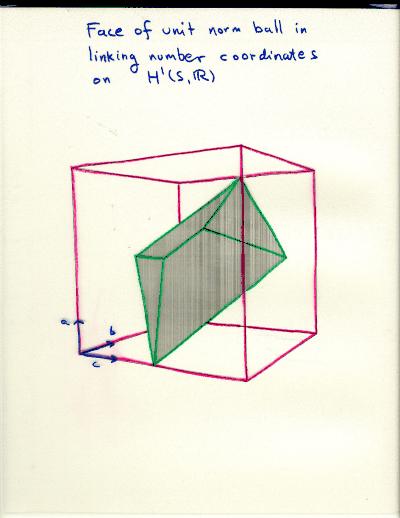 Face of unit norm ball in
linking number coordinates
on H¹(S, ℝ)
a
b
c